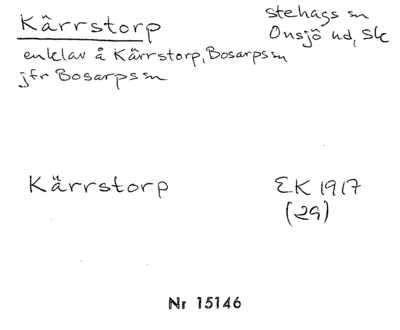 Kärrstorp
stehags sn
Onsjö hd, Sk
enklav å Kärrstorp, Bosarps sn
jfr Bosarps sn
Kärrstorp
EK 1917
(29)
Nr 15146